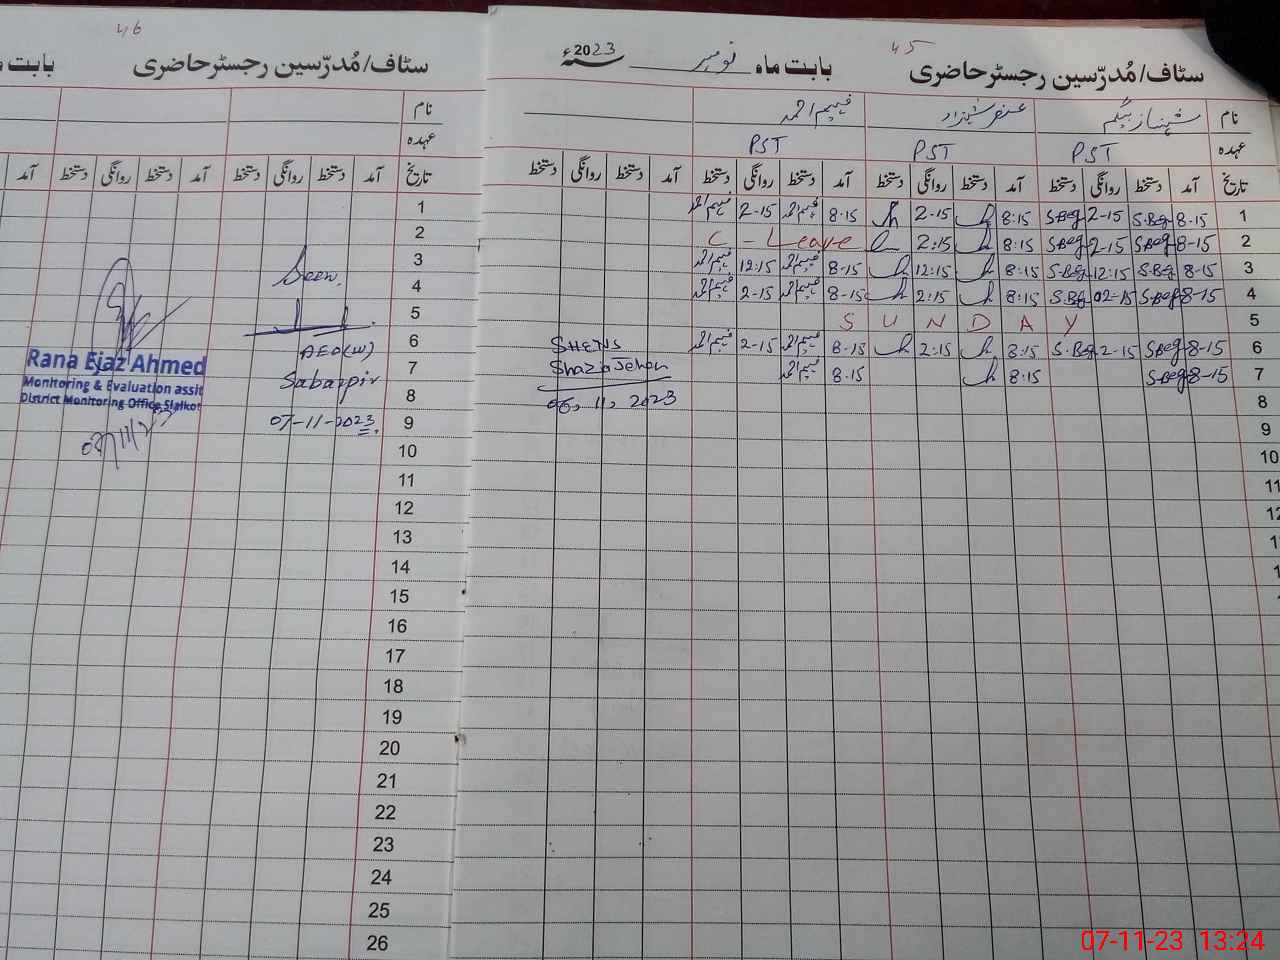 45
سٹاف/مُدرّسین رجسٹرحاضری بابت ماہ نومبر 2023ء
نام شہناز بیگم عنصر شہزاد فہیم احمد
عہدہ PST PST PST
تاریخ آمد دستخط روانگی دستخط آمد دستخط روانگی دستخط آمد دستخط روانگی دستخط آمد دستخط روانگی دستخط
1 8-15 S.Beg 2-15 S.Beg 8:15 2-15 8-15 فہیم احمد 2-15 فہیم احمد
2 8-15 S.Beg 2-15 S.Beg 8:15 2:15 C-Leave
3 8-15 S.Beg 12:15 S.Beg 8:15 12:15 8-15 فہیم احمد 12:15 فہیم احمد
4 8-15 S.Beg 02-15 S.Beg 8:15 2:15 8-15 فہیم احمد 2-15 فہیم احمد
5 SUNDAY
6 8-15 S.Beg 2-15 S.Beg 8:15 2:15 8-15 فہیم احمد 2-15 فہیم احمد
7 8-15 S.Beg 8:15 8-15 فہیم احمد
8
9
10
11
12
Shazia Jehan
06.11.2023
46
سٹاف/مُدرّسین رجسٹرحاضری
بابت
نام
عہدہ
تاریخ آمد دستخط روانگی دستخط آمد دستخط روانگی دستخط آمد
1
2
3
4
5
6
7
8
9
10
11
12
13
14
15
16
17
18
19
20
21
22
23
24
25
26
Seen.
AEO(W)
Sabazpir
07-11-2023.
Rana Ejaz Ahmed
Monitoring & Evaluation assit
District Monitoring Office Sialkot
07/11/23
07-11-23 13:24